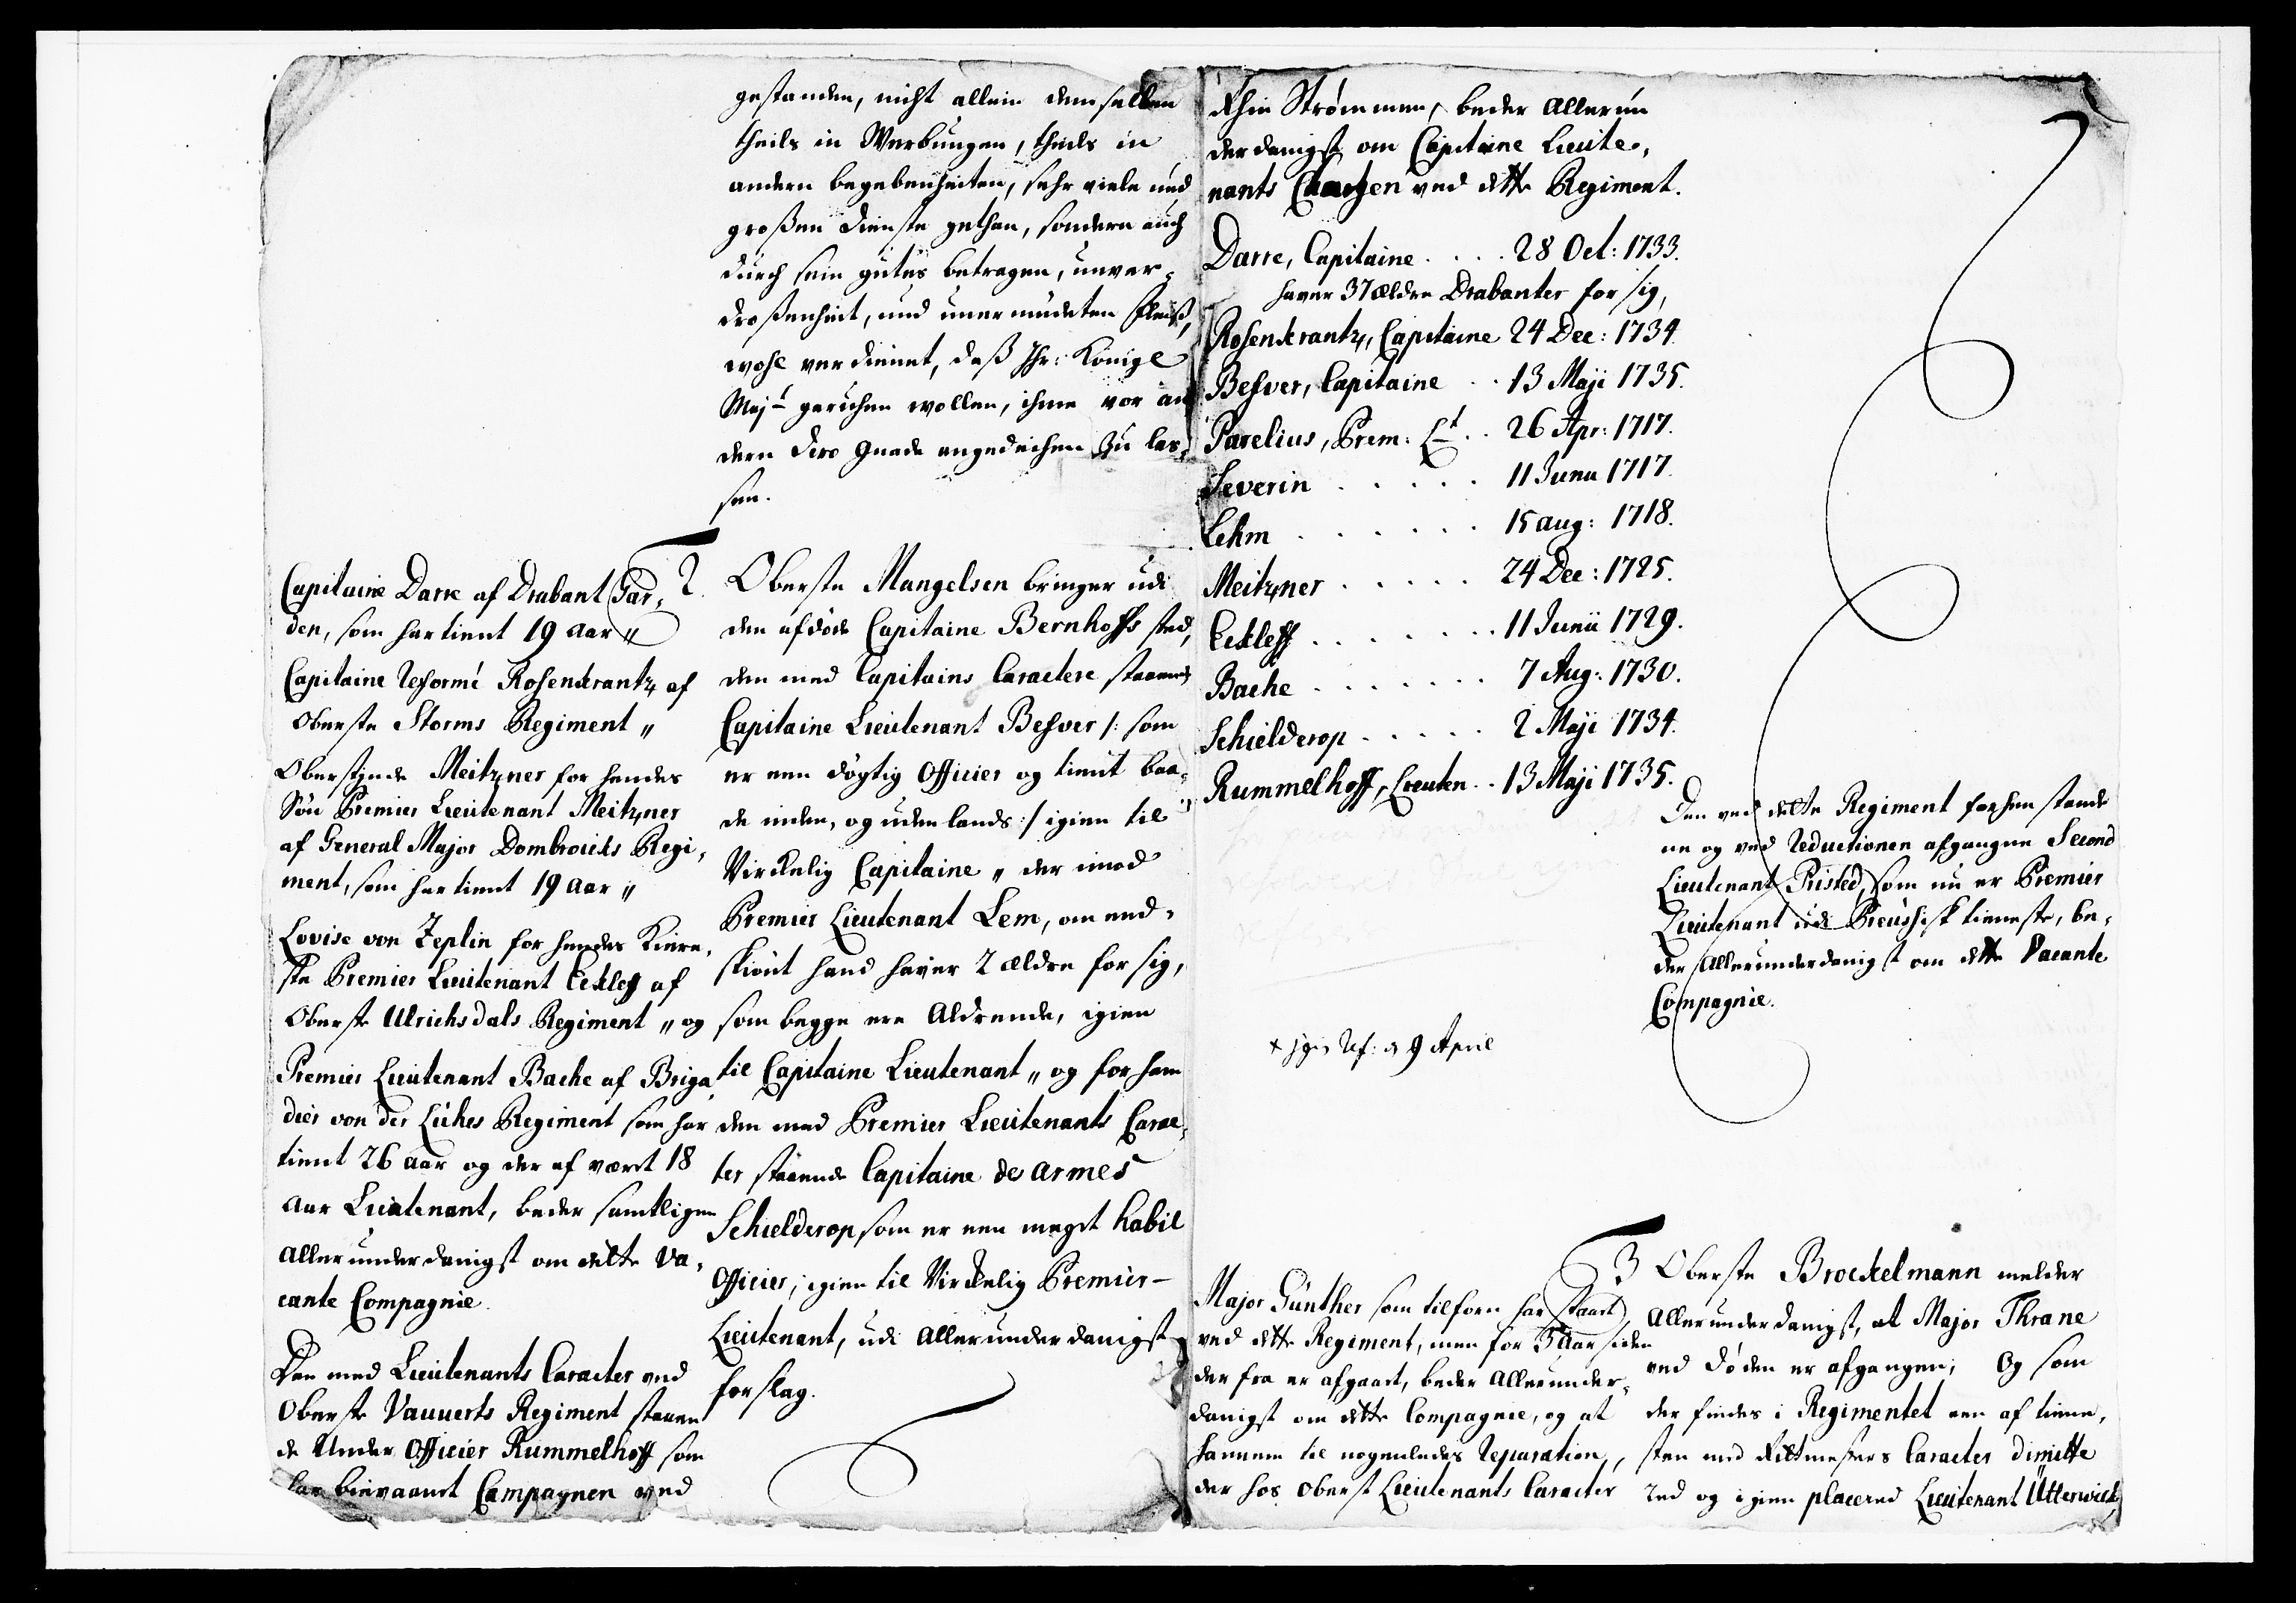 gestanden, nicht allein demselben
theils in Werbungen, theils in
andern begebenheiten, sehr viele und
großen Dienste gethan, sondern auch
durch sein gutes betragen, unver-
droßenheit, und unermüdeten fleiß,
wohl verdienet, daß Ihr: Königl
Majt geruhen wollen, ihme vor an
dern Dero Gnade angedeihen zu las-
sen.
Capitaine Darre af Drabant Gar-
den, som har tient 19 Aar "
Capitaine Reformé Rosenkrantz af
Oberste Storms Regiment "
Oberstinde Meitzner for hendes
Søn Premier Lieutenant Meitzner
af General Major Dombroicks Regi-
ment, som har tient 19 Aar "
Lovise von Zeplin for hendes Kiere-
ste Premier Lieutenant Eckleff af
Oberste Ulrichsdals Regiment " og
Premier Lieutenant Bache af Briga-
dier von der Lühes Regiment som har
tient 26 Aar og der af været 18
Aar Lieutenant, beder samtligen
Allerunderdanigst om dette va-
cante Compagnie.
Den med Lieutenants Caracter ved
Oberste Vauuerts Regiment staaen
de Under Officier Rummelhoff som
har bievaanet Campagnen ved
2. Oberste Mangelsen bringer udi
den afdøde Capitaine Bernhoffs sted,
den med Capitains Caractere staaende
Capitaine Lieutenant Besver /: som
er een dygtig Officier og tient baa-
de inden, og uden lands :/ igien til
Virkelig Capitaine " der imod
Premier Lieutenant Lem, om end-
skiönt hand haver 2 ældre for sig,
som begge ere Aldrende, igien
til Capitaine Lieutenant " og for ham
den med Premier Lieutenants Carac-
ter staaende Capitaine de armes
Schielderop, som er een meget habil
Officier, igien til Virkelig Premier-
Lieutenant, udi Allerunderdanigst
forslag.
Rhin Strømmen, beder Allerun
derdanigst om Capitaine Lieute-
nants Chargen ved dette Regiment.
Darre, Capitaine .... 28 Oct: 1733.
haver 37 ældre Drabanter for sig,
Rosenkrantz, Capitaine 24 Dec: 1734.
Besver, Capitaine .. 13 Maji 1735.
Parelius, Prem: Lt .. 26 Apr: 1717.
Severin ..... 11 Junii 1717.
Lehm ...... 15 aug: 1718.
Meitzner ..... 24 Dec: 1725.
Eckleff ....... 11 Junii 1729.
Bache ....... 7 Aug: 1730.
Schielderop ..... 2 Maji 1734.
Rummelhoff, Lieuten .. 13 Maji 1735.
9 April
Den ved dette Regiment forhen staaende
ne og ved Reductionen afgangne Second
Lieutenant Pristed, som nu er Premier
Lieutenant udi Preussisk tieneste, be-
der Allerunderdanigst om dette Vacante
Compagnie.
Major Günther som tilforn har staaet
ved dette Regiment, men for 3 Aar siden
der fra er afgaaet, beder Allerunder-
danigst om dette Compagnie, og at
hannem til nogenledes Reparation,
der hos Oberst Lieutenants Caracter
3 Oberste Brockelmann melder
Allerunderdanigst, at Major Thrane
ved Døden er afgangen; Og som
der findes i Regimentet een af tiene-
sten med Ritmesters Caracter dimitte
red og igien placered Lieutenant Ütterwick,